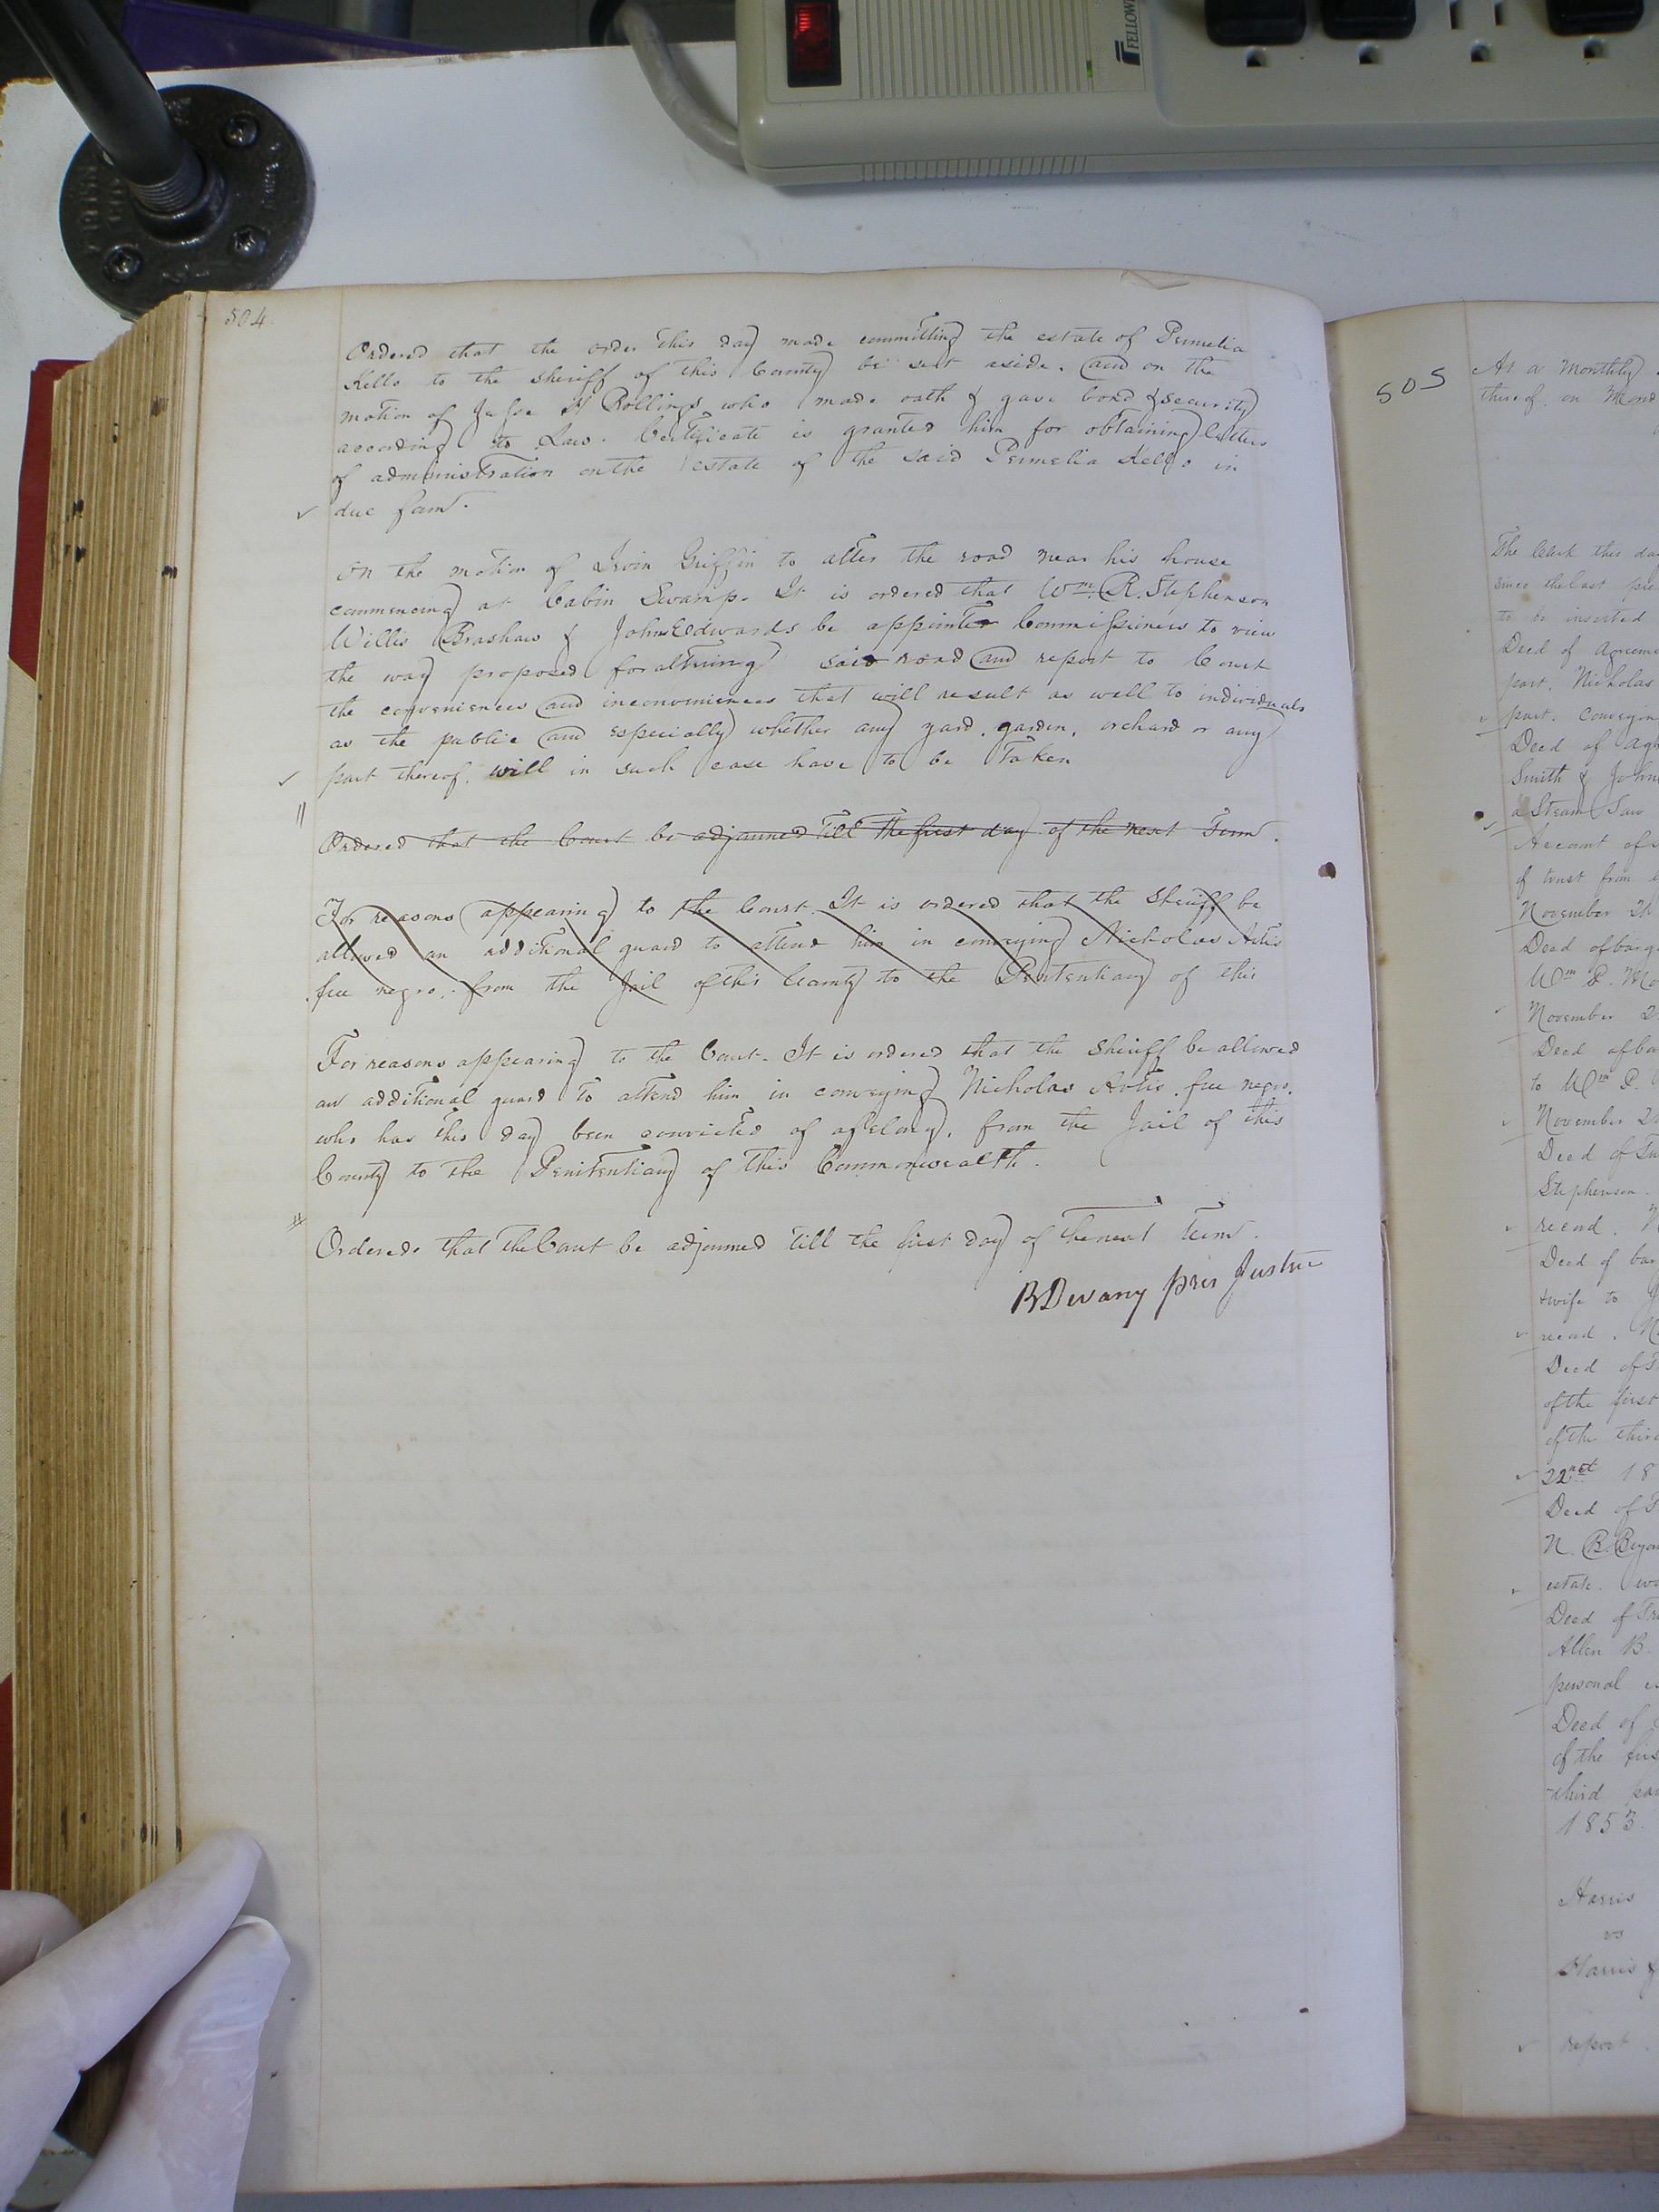 504.
Ordered that the order this day made committing the estate of Permelia
Kello to the sheriff of this County be set aside. and on the
motion of Jesse H Rollings who made oath & gave bond & security
according to Law. Certificate is granted him for obtaining letters
of administration on the estate of the said Permelia Kello in
due form.
On the motion of Irvin Griffin to alter the road near his house
commencing at Cabin Swamp. It is ordered that Wm. R. Stephenson
Willis Brashaw & John Edwards be appointed Commissioners to view
the way proposed for altering said road and report to Court
the conveniences and inconveniences that will result as well to individuals
as the public and especially whether any yard, garden, orchard or any
part thereof, will in such case have to be taken
Ordered that the Court be adjourned till the first day of the next Term.
For reasons appearing to the Court. It is ordered that the Sheriff be
allowed an additional guard to attend him in conveying Nicholas Artis
free negro, from the Jail of this County to the Pentitentiary of this
For reasons appearing to the Court. It is ordered that the Sheriff be allowed
an additional guard to attend him in conveying Nicholas Artis, free negro,
who has this day been convicted of a felony, from the Jail of this
County to the Penitentiary of this Commonwealth.
Ordered that the Court be adjourned till the first day of the next Term.
B Devany pres Justice
505
At a Monthly
thereof, on Mond
The Clerk this da
since the last
to be inserted
Deed of Agreeme
part, Nicholas
part. Conveyin
Deed of Ag
Smith & John
a Steam Saw
Account of
of trust from
November 2
Deed of barg
Wm P. Mo
November 2
Deed of ba
to Wm P.
November 2
Deed of Tu
Stephenson.
record. N
Deed of bar
& wife to J
record. N
Deed of T
of the first
of the third
22nd 18
Deed of T
N. B. Bryan
estate.
Deed of Tru
Allen B.
personal
Deed of
of the fir
third par
1853.
Harris
vs
Harris &
report.
FELLOW